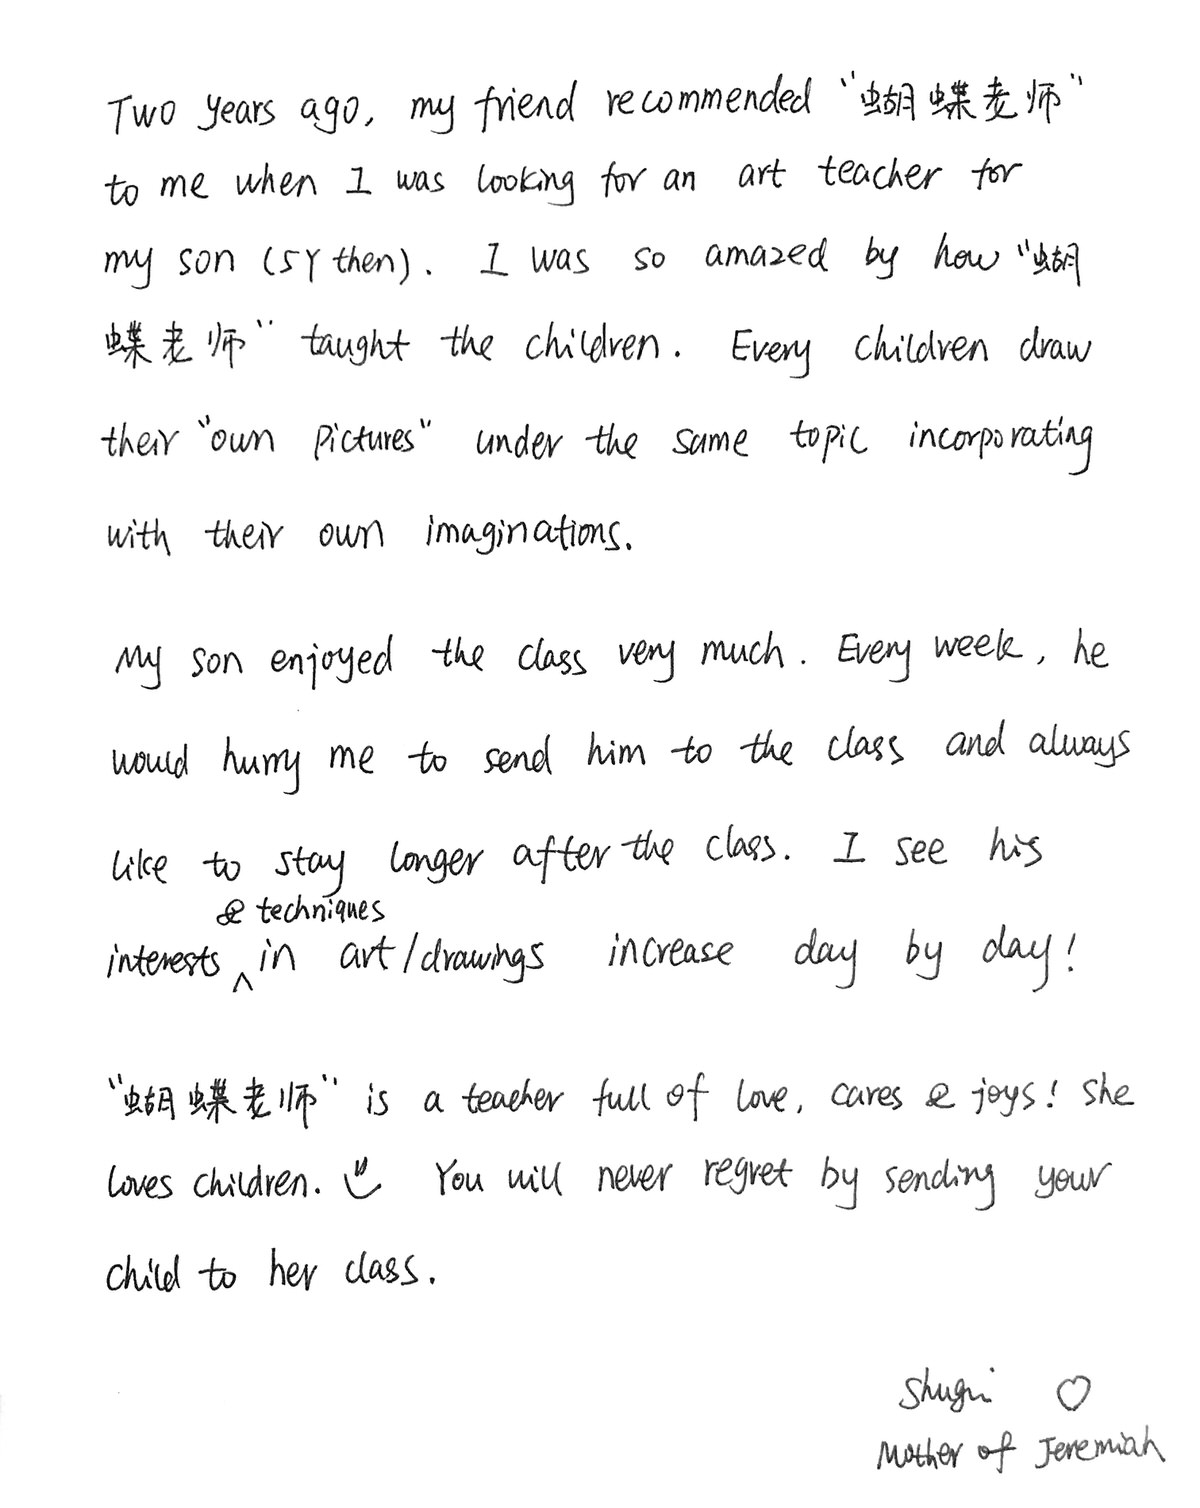 Two years ago, my friend recommended "蝴蝶老师"
to me when I was looking for an art teacher for
my son (5Y then). I was so amazed by how "蝴
蝶老师" taught the children. Every children draw
their "own pictures" under the same topic incorporating
with their own imaginations.
My son enjoyed the class very much. Every week, he
would hurry me to send him to the class and always
like to stay longer after the class. I see his
& techniques
interests ^ in art/drawings increase day by day!
"蝴蝶老师" is a teacher full of love, cares & joys! She
loves children. You will never regret by sending your
child to her class.
Mother of Jeremiah